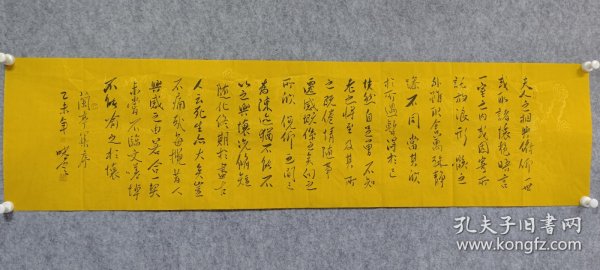 夫人之相與俯仰一世
或取諸懷抱晤言
一室之内或因寄所
託放浪形骸之
外雖趣舍萬殊靜
躁不同當其欣
於所遇暫得於己
快然自足曾不知
老之將至及其所
之既倦情隨事
遷感慨係之矣向之
所欣俛仰之間
為陳迹猶不能不
以之興懷況脩短
隨化終期於盡古
人云死生亦大矣豈
不痛哉每攬昔人
興感之由若合一契
未嘗不臨文嗟悼
不能喻之於懷
蘭亭集序
乙未年
孔夫子旧书网
www.kongfz.com